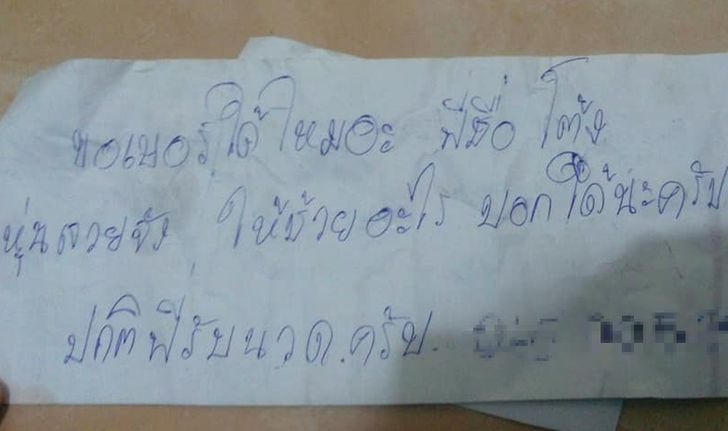 ขอเบอร์ได้ใหมอะ พี่ชื่อ โต้ง
หุ่นสวยจัง ให้ช้วยอะไร บอกได้นะครับ
ปกติพี่รับนวด.ครับ.